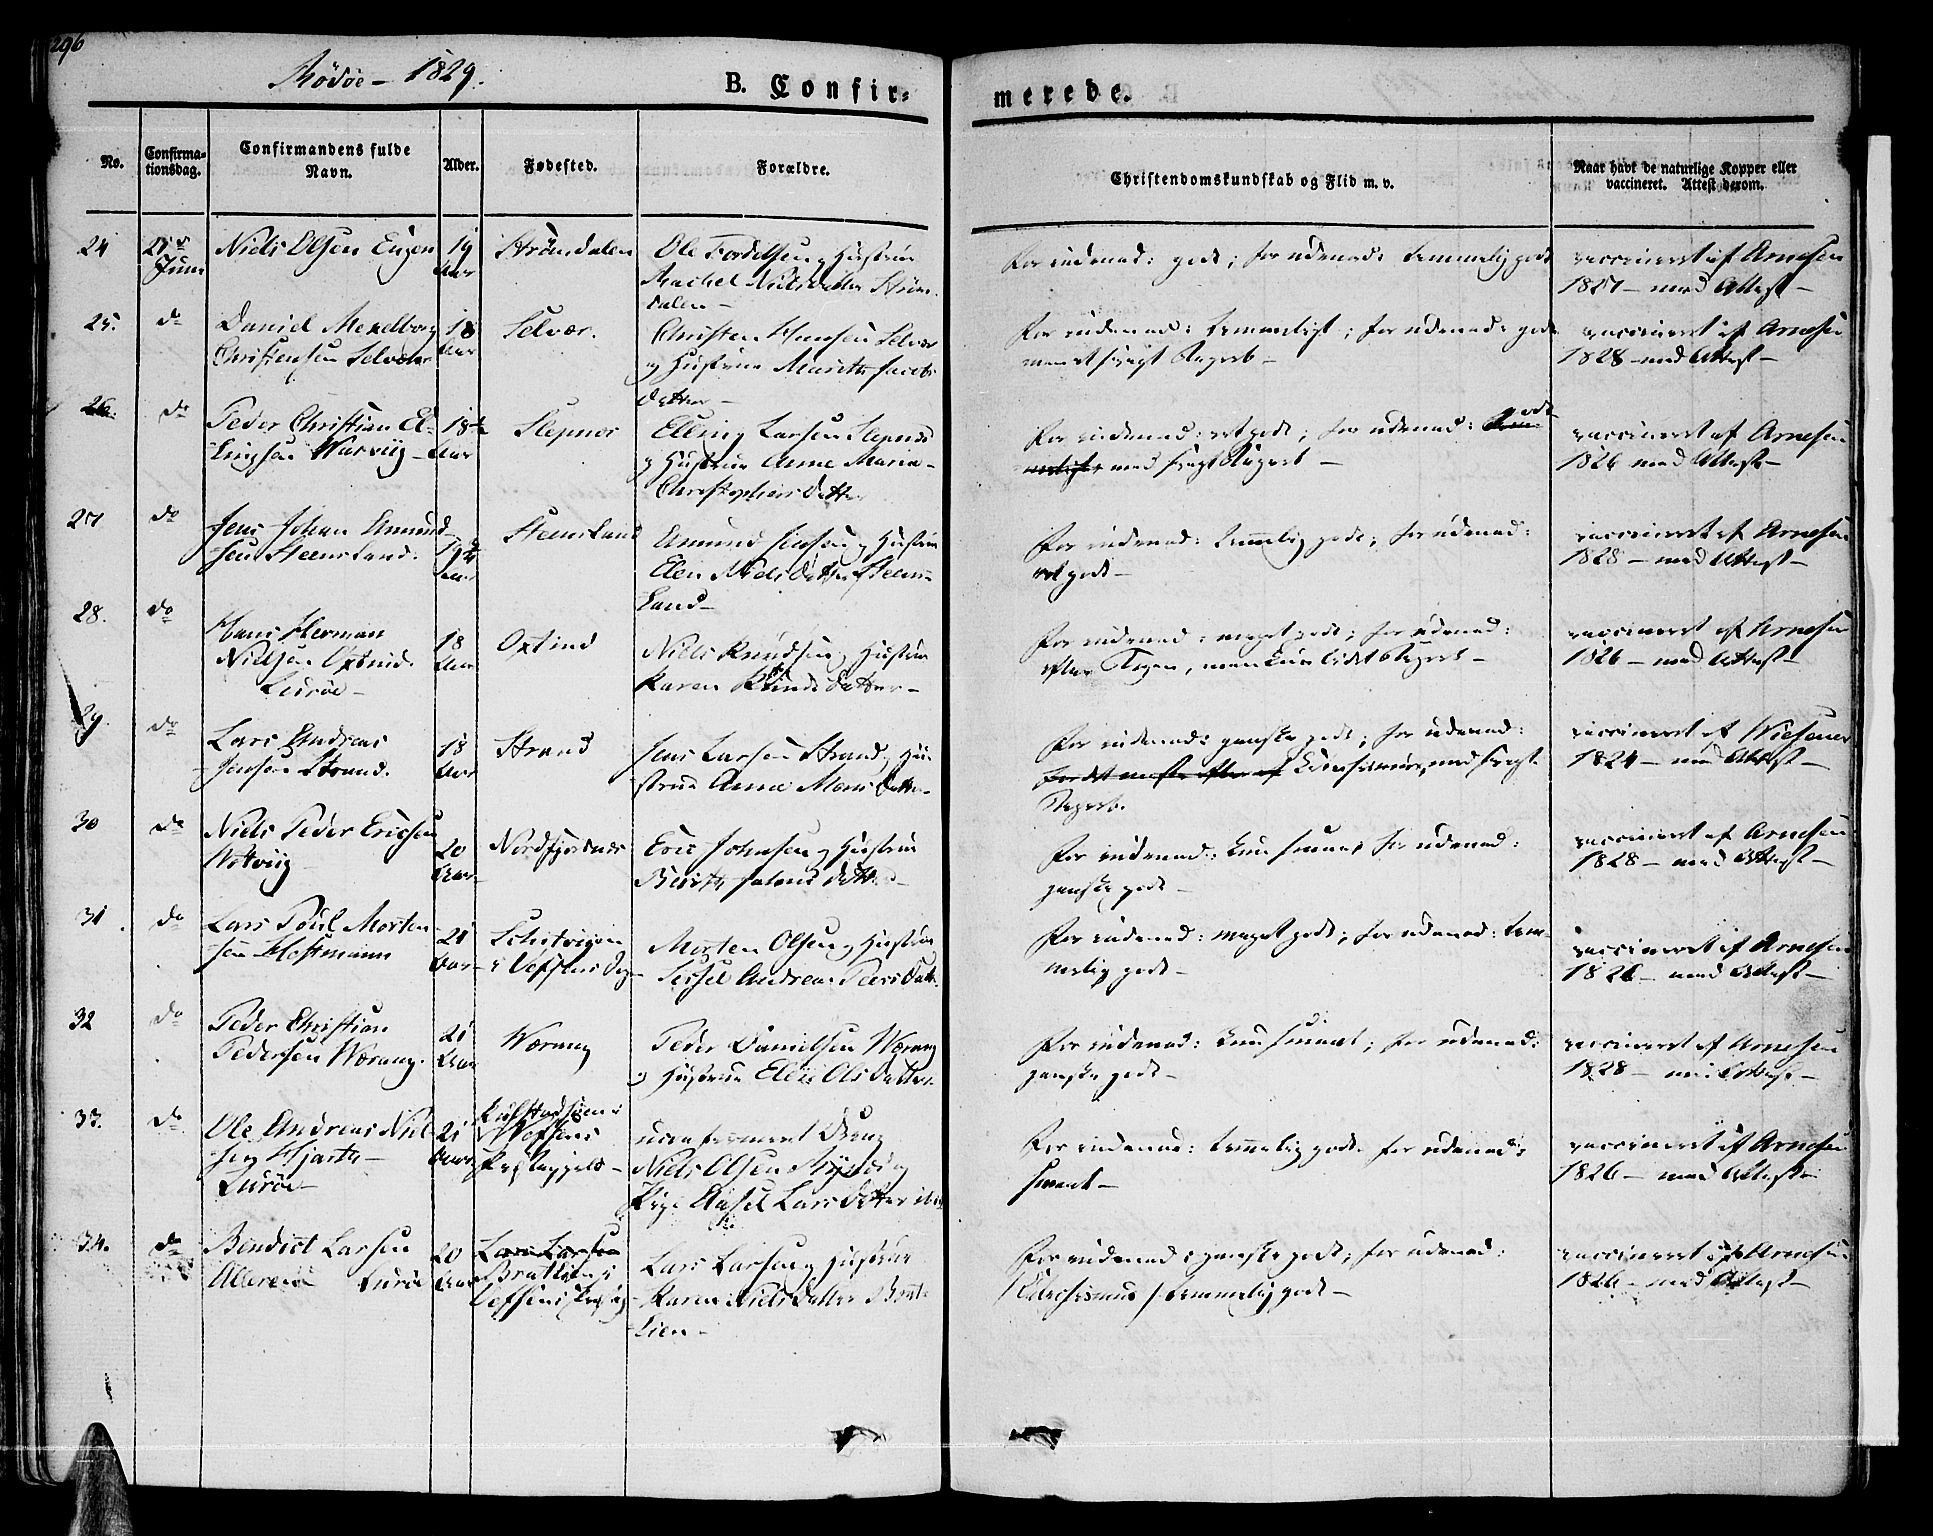 296
Rödöe – 1829.
B. Confir-
merede.
No.
Confirma-
tionsdag.
Confirmandens fulde
Navn.
Alder.
Fødested.
Forældre.
Christendomskundskab og Flid m. v.
Naar havt de naturlige Kopper eller
vaccineret. Attest derom.
24
Juni
Niels Olsen
19
Aar
Ole
Rachel Niels Datter
For indenad: godt; for udenad: temmelig godt
vaccineret af Arnesen
1827 – med Attest –
25.
do
Daniel
Christensen Selvær
18
Aar
Selvær.
Christen Hansen Selvær
og Hustrue Marith Jacobs
datter –
For indenad: temmeligt; for udenad: godt
1828 – med Attest –
vaccineret af Arnesen
26.
do
Peder Christian El-
lingsen
18½
Aar
Slepnes
Elling Larsen Slepnes
og Hustrue Anne Maria
Christophers datter
For indenad: ret godt; for udenad:
med svagt Begreb –
vaccineret af Arnesen
1826 med Attest –
27
do
Jens Johan Amund-
sen Steensland.
19
Steensland
Amund Jensen og Hustrue
Elen Niels datter Steens-
land –
For indenad: temmelig godt; for udenad:
ret godt –
vaccineret af Arnesen
1828 – med Attest –
28.
do
Hans Herman
Nielsen Oxtind
Lurøe –
18
Aar
Oxtind
Niels Knudsen og Hustrue
Karen Knuds datter –
For indenad: meget godt; for udenad:
efter Bogen, men kun lidet Begreb –
vaccineret af Arnesen
1826 – med Attest –
29.
do
Lars Andreas
Jensen Strand.
18
Aar
Strand
Jens Larsen Strand og Hu-
strue Anne Mons datter
For indenad: ganske godt; for udenad:
med svagt
Begreb.
vaccineret af Wiesener
1824 – med Attest –
30
do
Niels Peder Ericsen
20
Aar
Nordfjordnes
Eric Johnsen og Hustrue
Berith
For indenad: kun smaat; for udenad:
ganske godt –
vaccineret af Arnesen
1828 – med Attest –
31.
do
Lars Poul Morten-
sen Hestmann
21
Aar
Morten Olsen og Hustrue
Sissel Andrea Peers datt.
For indenad: meget godt; for udenad: tem-
melig godt –
vaccineret af Arnesen
1826 – med Attest –
32
do
Peder Christian
Pedersen Wærang.
21
Aar
Wærang
Peder Danielsen Wærang
og Hustrue Elen Ols datter.
For indenad: kun smaat; for udenad:
ganske godt –
vaccineret af Arnesen
1828 – med Attest –
33.
do
Ole Andreas Niel-
sen Hjarth –
Lurøe –
21
Aar
Vefsens
Præstegjeld –
Dreng
Niels Olsen
Pige Lars datter
For indenad: temmelig godt. for udenad:
smaat –
vaccineret af Arnesen
1826 – med Attest –
34.
do
Bendict Larsen
Lurøe
20
Aar
Lars Larsen
Bratlien i
Lars Larsen og Hustrue
Karen Niels datter Brat-
lien –
For indenad: ganske godt; for udenad:
(Catechismus) temmelig godt –
vaccineret af Arnesen
1826 – med Attest –